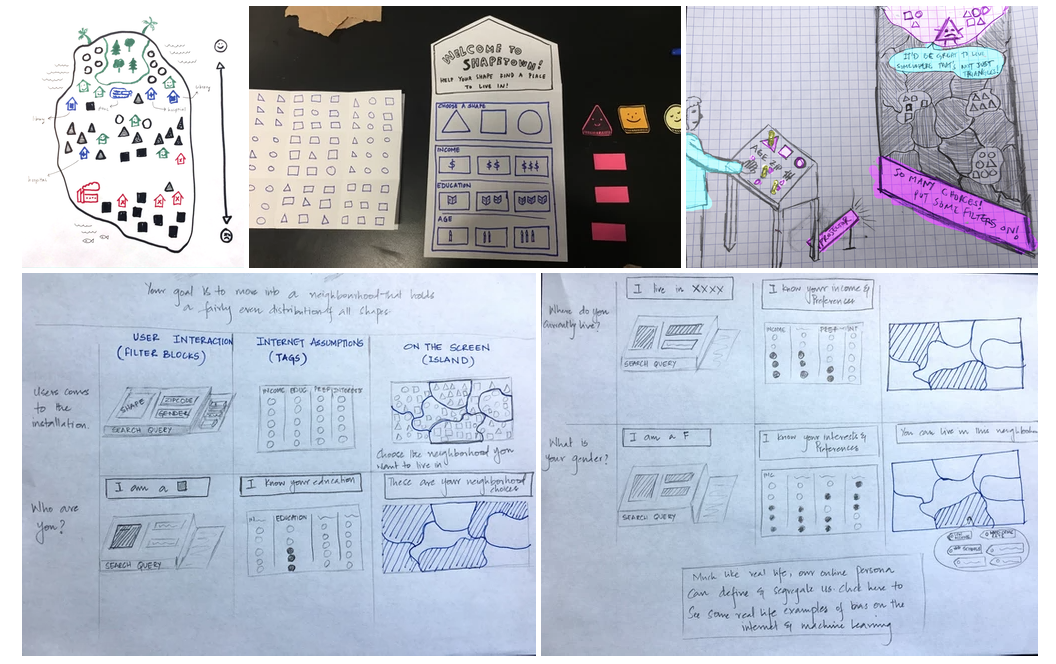 library
hospital
hospital
WELCOME TO
SHAPETOWN!
HELP YOUR SHAPE FIND A PLACE
TO LIVE IN!
CHOOSE A SHAPE
INCOME
$ $$ $$$
EDUCATION
AGE
IT'D BE GREAT TO LIVE
SOMEWHERE THAT'S NOT JUST
TRIANGLES!
AGE
PROJECTOR
SO MANY CHOICES!
PUT SOME FILTERS ON!
Your goal is to move into a neighbourhood that holds
a fairly even distribution of all shapes
USER INTERACTION
(FILTER BLOCKS)
INTERNET ASSUMPTIONS
(TAGS)
ON THE SCREEN
(ISLAND)
Users comes
to the
installation.
SHAPE
ZIPCODE
GENDER
SEARCH QUERY
INCOME EDUC PREF INTERESTS
Choose the neighborhood you
want to live in
Who are
you?
I am a
I know your education
These are your neighborhood
choices
SEARCH QUERY
IN
EDUCATION
Where do you
currently live?
I live in XXXX
I know your income &
Preferences
SEARCH QUERY
INCOME PREF INT
What is
your gender?
I am a F
I know your interests &
Preferences
You can live in this neighborhood
SEARCH QUERY
INC
Much like real life, our online persona
can define & segregate us. Click here to
See some real life examples of bias on the
internet & machine learning